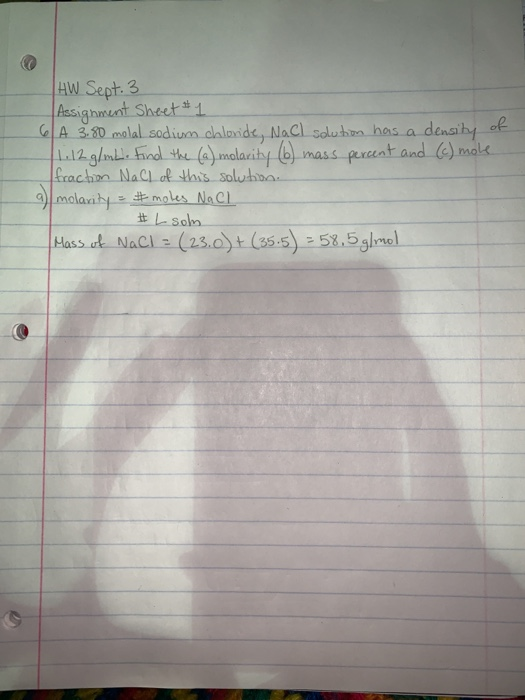 HW Sept. 3
Assignment Sheet #1
6) A 3.80 molal sodium chloride, NaCl solution has a density of
1.12g/mL. Find the (a) molarity (b) mass percent and (c) mole
fraction NaCl of this solution.
a) molarity = # moles NaCl
# L soln
Mass of NaCl = (23.0) + (35.5) = 58.5 g/mol